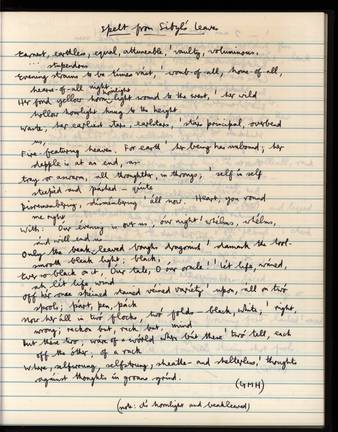 Spelt from Sibyl's Leaves
Earnest, earthless, equal, attuneable, ' vaulty, voluminous,
... stupendous
Evening strains to be time's vást, ' womb-of-all, home-of-all,
hearse-of-all night.
Her fond yellow hornlight wound to the west, ' her wild
hollow hoarlight hung to the height
Waste; her earliest stars, earlstars, ' stárs principal, overbend
us,
Fíre-féaturing heaven. For earth ' her being has unbound; her
dapple is at an end, as-
tray or aswarm, all throughther, in throngs; ' self ín self
steepèd and páshed – quite
Disremembering, dísmémbering ' áll now. Heart, you round
me right
With: Óur évening is over us; óur night ' whélms, whélms,
ánd will end us.
Only the beak-leaved boughs dragonish ' damask the tool-
smooth bleak light; black,
Ever so black on it. Our tale, O our oracle! ' Lét life, wáned,
ah lét life wind
Off hér once skéined stained véined varíety ' upon, áll on twó
spools; párt, pen, páck
Now her áll in twó flocks, twó folds – black, white; ' right,
wrong; reckon but, reck but, mind
But thése two; wáre of a wórld where bút these ' twó tell, each
off the óther; of a rack
Where, selfwrung, selfstrung, sheathe- and shelterless, ' thóughts
agaínst thoughts ín groans grínd.
(GMH)
(note: di hornlight and beakleaved)